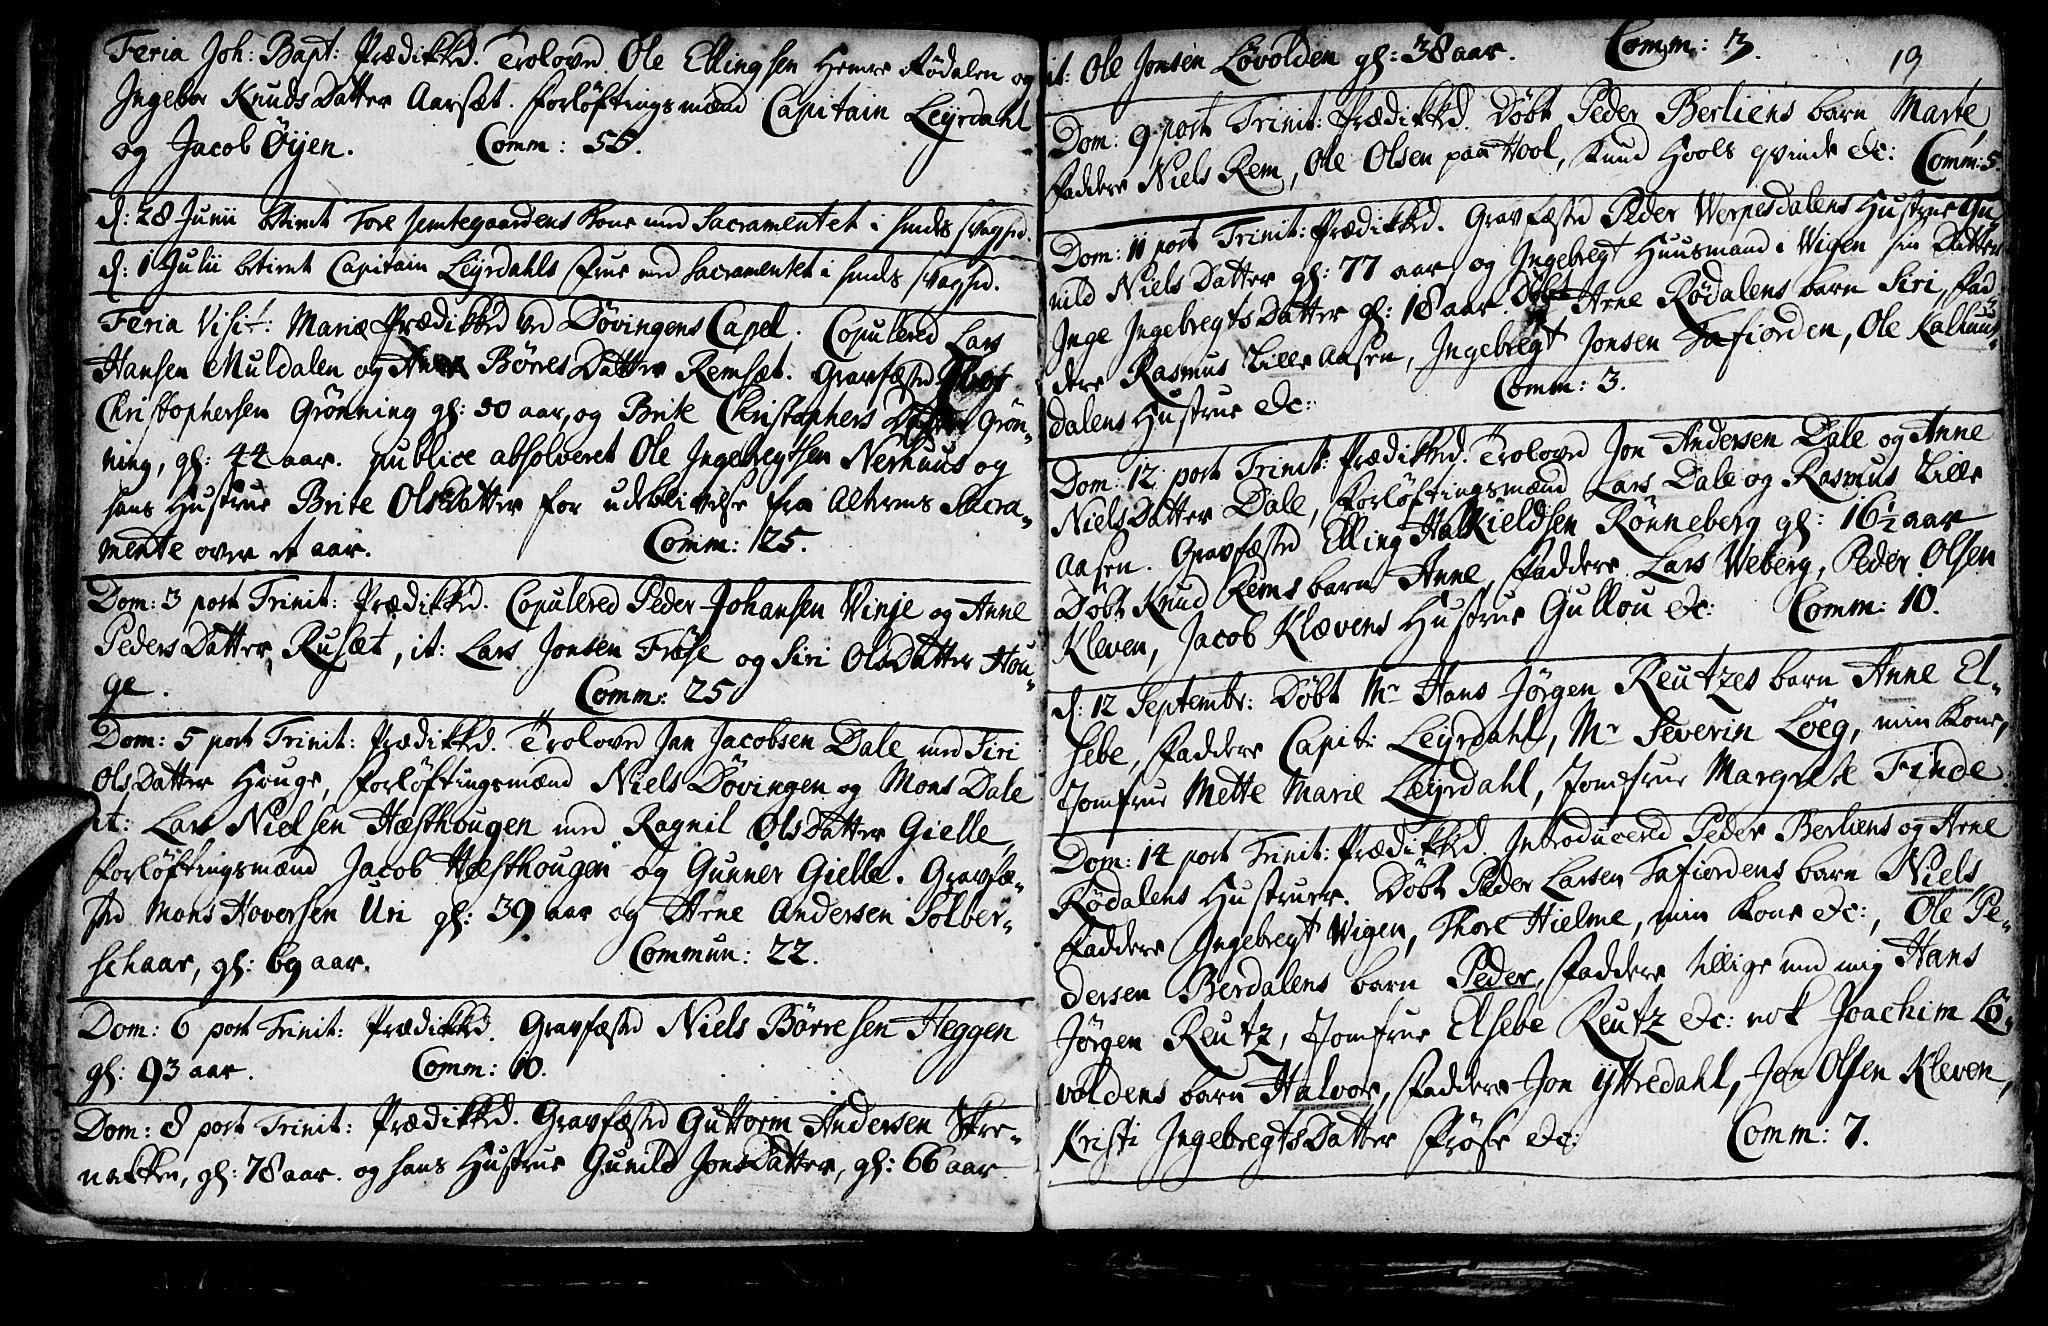 Feria Joh: Bapt: Prædikkd. Trolovd Ole Ellingsen Hemre Rødalen og
Ingebor Knuds Datter Aarsæt. Forløftings mænd Capitain Leyrdahl
og Jacob Øyen. Comm: 55.
d: 28 Junii betient Tore Jemtegaardens Kone med Sacramentet i hendes svaghed.
d: 1 Julii betient Capitain Leyrdahls frue med Sacramentet i hendes svaghed.
Feria Visit: Mariæ Prædikked ved Døvingens Capel. Copulered Lars
Hansen Muldalen og Anne Børres Datter Remsæt. Gravfæsted
Christophersen Grønning gl: 50 aar, og Brite Christophers Datter Grøn-
ning, gl: 44 aar. publice absolveret Ole Ingebregtsen Nerhuus og
hans Hustrue Brite Olsdatter for udeblivelse fra Alterens Sacra-
mente over et aar. Comm: 125.
Dom: 3 post Trinit: Prædikkd. Copulered Peder Johansen Winje og Anne
Peders Datter Rusæt, it: Lars Jonsen Frøse og Siri Olsdatter Hou-
ge. Comm: 25
Dom: 5 post Trinit: Prædikkd. Trolovd Jan Jacobsen Dale med Siri
Olsdatter Houge, Forløftingsmænd Niels Døvingen og Mons Dale
it: Lars Nielsen Hæsthougen med Ragnil Olsdatter Gielle,
Forløftingsmænd Jacob Hæsthougen og Gunner Gielle. Gravfæ-
sted Mons Hoversen Uri gl: 39 aar og Arne Andersen Solber-
schaar, gl: 69 aar. Commun: 22.
Dom: 6 post Trinit: Prædikkd. Gravfæsted Niels Børresen Heggen
gl: 93 aar. Comm: 10.
Dom: 8 post Trinit: Prædikkd. Gravfæsted Guttorm Andersen Skre-
nakken, gl: 78 aar. og hans Hustrue Gunild Jons Datter, gl: 66 aar
it: Ole Jonsen Løvolden gl: 38 aar. Comm: 13. 19
Dom: 9 post Trinit: Prædikkd. Døbt Peder Berliens barn Marte,
Faddere Niels Rem, Ole Olsen paa Hool, Knud Hools qvinde &c: Comm: 5.
Dom: 11 post Trinit: Prædikkd. Gravfæsted Peder Werpesdalens Hustrue Gu-
nild Niels Datter gl: 77 aar og Ingebregt Huusmand i Wigen sin Datter
Inge Ingebregts Datter gl: 18 aar. Døbt Arne Rødalens barn Siri, Fad-
dere Rasmus Lille Aasen, Ingebregt Jonsen Tafiorden, Ole Kalhuus-
dalens Hustrue &c: Comm: 3.
Dom: 12 post Trinit: Prædikkd. Trolovd Jon Andersen Dale og Anne
Niels Datter Dale, Forløftingsmænd Lars Dale og Rasmus Lille
aasen. Gravfæsted Elling Halkieldsen Rønneberg gl: 16½ aar
Døbt Knud Rems barn Anne, Faddere Lars Weberg, Peder Olsen
Kleven, Jacob Klævens Hustrue Gullou &c: Comm: 10.
d: 12 Septembr: Døbt Mr Hans Jørgen Reutzes barn Anne El-
sebe, Faddere Capit: Leyrdahl, Mr Severin Løeg, min Kone,
Jomfrue Mette Marie Leyrdahl, Jomfrue Margrete Finde
Dom: 14 post Trinit: Prædikkd. Introducered Peder Berliens og Arne
Rødalens Hustruer. Døbt Peder Larsen Tafiordens barn Niels
Faddere Ingebregt Wigen, Thore Hielme, min Kone &c:, Ole Pe-
dersen Berdalens barn Peder, Faddere tillige med mig Hans
Jørgen Reutz, Jomfrue Elsebe Reutz &c: nok Joachim Lø-
voldens barn Halvor, Faddere Jon Yttredahl, Jon Olsen Kleven,
Kristi Ingebregts Datter Frøse &c: Comm: 7.